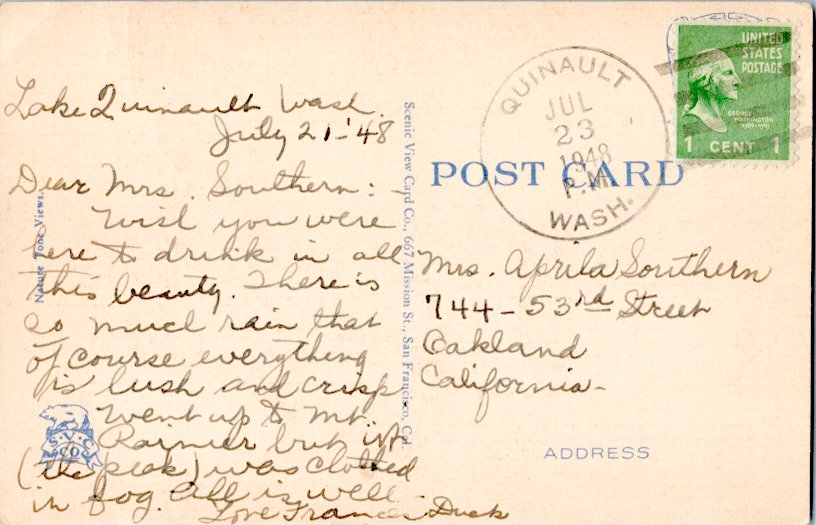 Lake Quinault Wash.
July 21-'48
Dear Mrs. Southern:-
Wish you were
here to drink in all
this beauty. There is
so much rain that
of course everything
is lush and crisp
Went up to Mt.
Rainier but it
(the peak) was clothed
in fog. All is well
Love Frances Duck
Nature Tone Views.
S.V.C.
CO.
Scenic View Card Co., 667 Mission St., San Francisco, Cal.
POST CARD
QUINAULT
JUL
23
1948
P.M.
WASH.
UNITED
STATES
POSTAGE
GEORGE
WASHINGTON
1789-1797
1 CENT 1
Mrs. Aprila Southern
744-53rd Street
Oakland
California-
ADDRESS